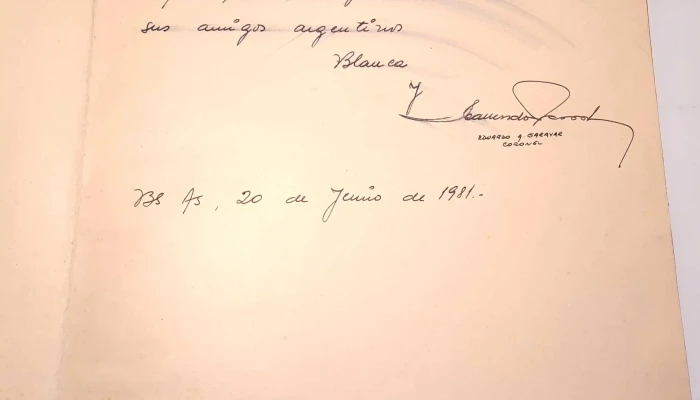 sus amigos argentinos
Blanca
y
EDUARDO A. GARAYAR
CORONEL
Bs As, 20 de Junio de 1981.-